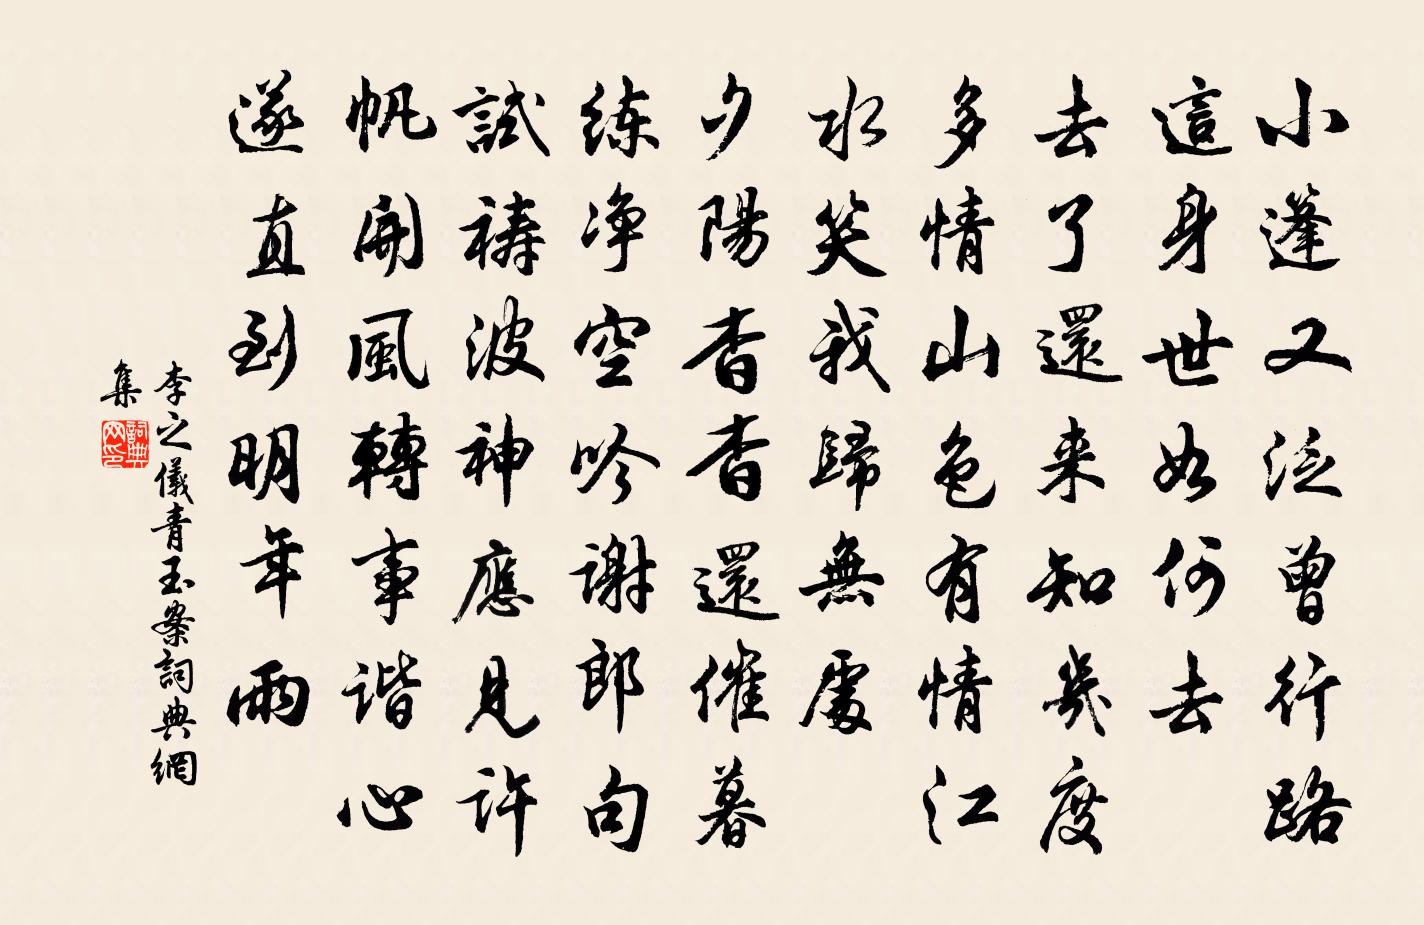 小蓬又泛曾行路
這身世如何去
去了還来知幾度
多情山色有情江
水笑我歸無處
夕陽杳杳還催暮
練净空吟谢郎句
試禱波神應見許
帆開風轉事谐心
遂直到明年雨
李之儀青玉案詞典網
集
詞典网印